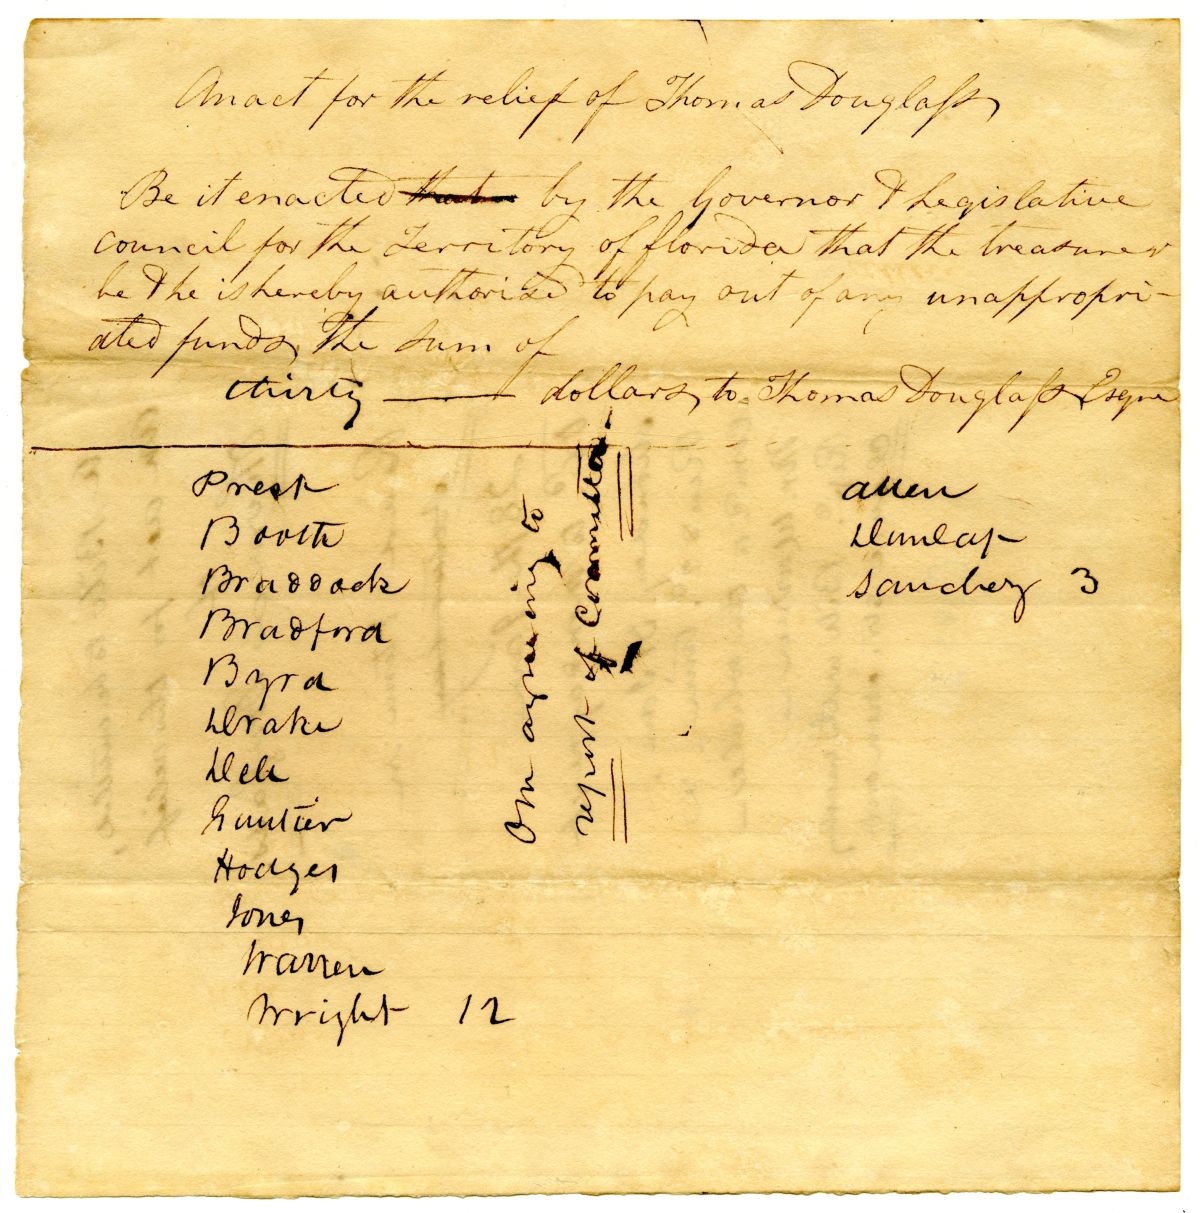 An act for the relief of Thomas Douglass
Be it enacted that by the Governor & Legislative
council for the Territory of florida that the treasurer
be & he is hereby authorised to pay out of any unappropri-
ated funds, the sum of
thirty —— dollars, to Thomas Douglass Esqre
Prest
Booth
Braddock
Bradford
Byrd
Drake
Dell
Gautier
Hodges
Jones
Warren
Wright 12
On agreeing to
report of Committee
Allen
Dunlap
Sanchez 3